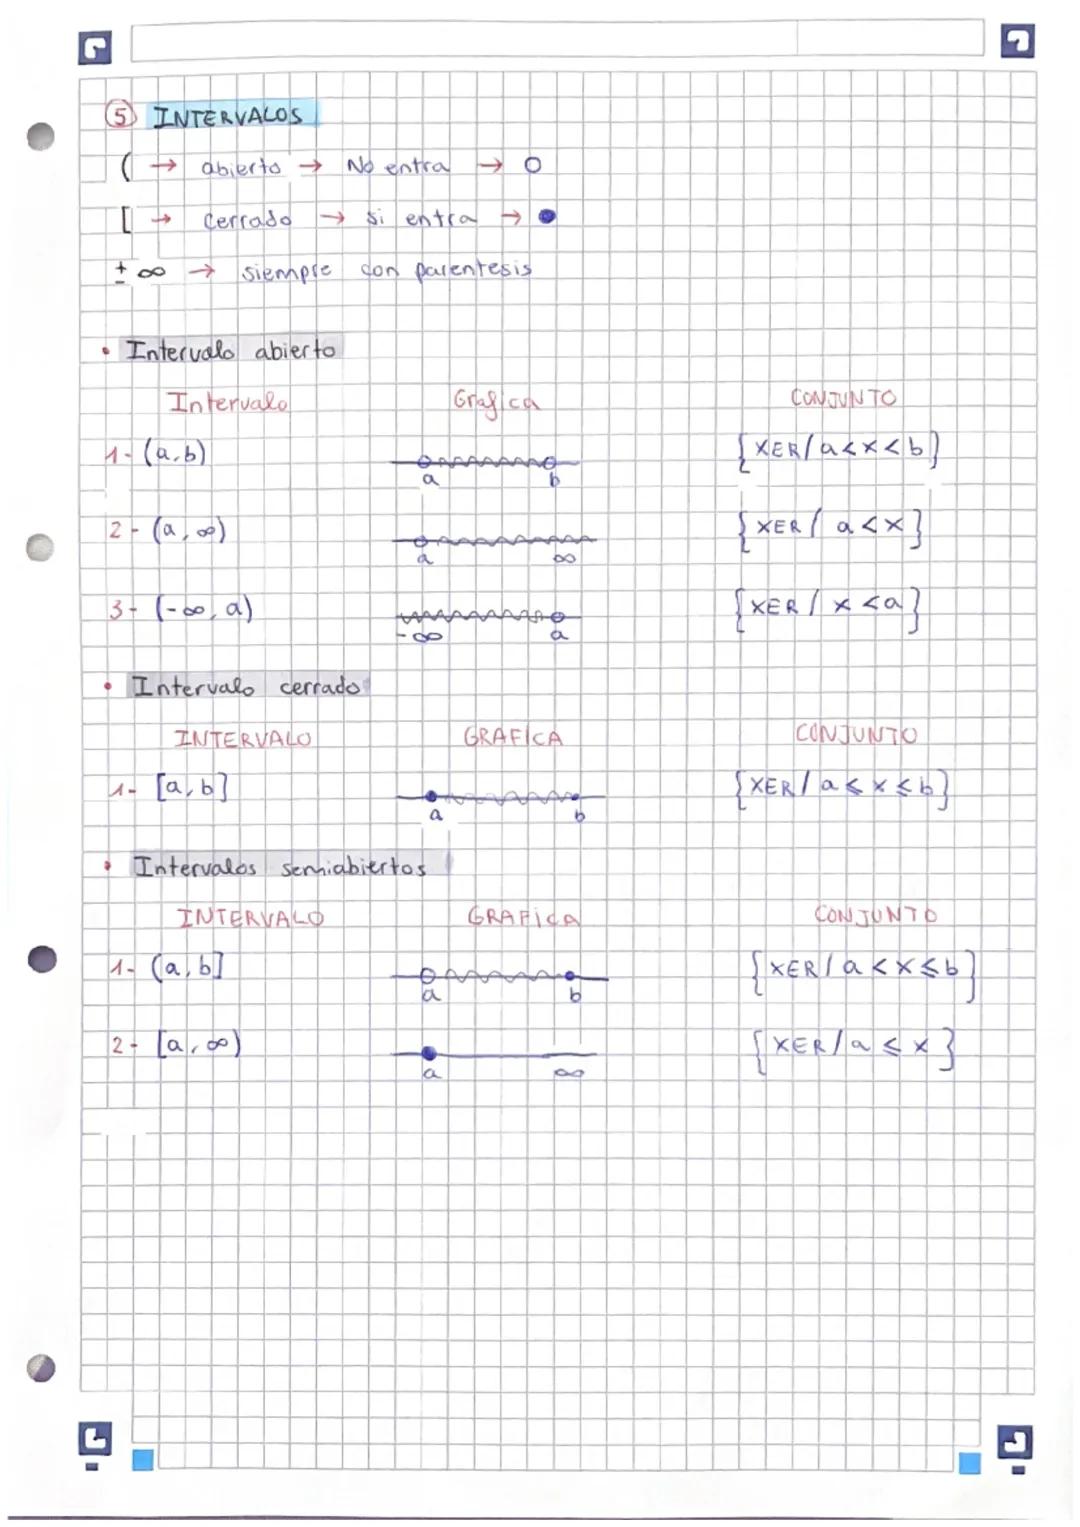 5 INTERVALOS
( → abierto → No entra → O
[ → cerrado → si entra → ●
± ∞ → siempre con parentesis
• Intervalo abierto
Intervalo Grafica CONJUNTO
1- (a,b) a b {XER/ a<x<b}
2- (a, ∞) a ∞ {XER/ a<x}
3- (-∞, a) -∞ a {XER/ x<a}
• Intervalo cerrado
INTERVALO GRAFICA CONJUNTO
1- [a, b] a b {XER/ a≤x≤b}
• Intervalos semiabiertos
INTERVALO GRAFICA CONJUNTO
1- (a, b] a b {XER/ a<x≤b}
2- [a, ∞) a ∞ {XER/ a≤x}